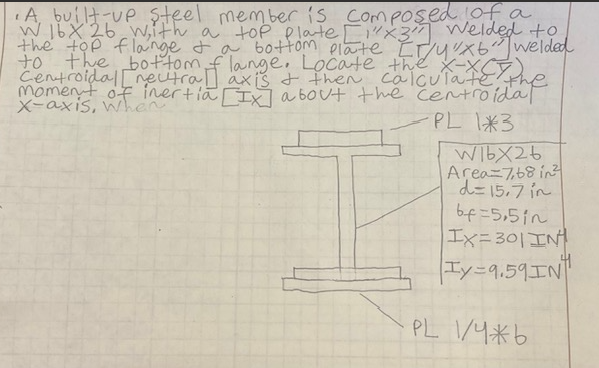 . A built-up steel member is composed of a
W16X26 with a top plate [1"x3"] welded to
the top flange & a bottom plate [1/4"x6"] welded
to the bottom flange. Locate the x-x (ȳ)
Centroidal [neutral] axis & then calculate the
moment of inertia [Ix] about the centroidal
x-axis. When
PL 1*3
W16X26
Area=7.68 in²
d=15.7 in
bf=5.5in
Ix=301 IN⁴
Iy=9.59IN⁴
PL 1/4*6